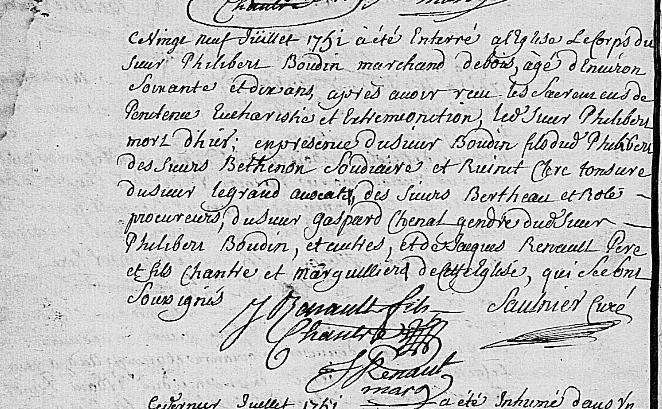 Chantre marg
Ce Vingt neuf Juillet 1751 a été Enterré a l'Eglise Le Corps du
Sieur Philibert Boudin marchand de bois, agé d'Environ
Soixante et dix ans, après avoir reçu les Sacremens de
Penitence Eucharistie et Extremeonction, led. Sieur Philibert
mort d'hier; en presence du sieur Boudin fils dud. Philibert
des Sieurs Bethenon Soudiacre et Ruinet Clerc tonsuré
du sieur legrand avocat, des Sieurs Bertheau et Role
procureurs, du sieur gaspard Chenal gendre dud. Sieur
Philibert Boudin, et autres, et de Jacques Renault Pere
et fils Chantre et marguilliers de cette Eglise, qui Se sont
Soussignés
J Renault fils Saulnier Curé
Chantre
J Renaut
marg
Juillet 1751 a été Inhumé dans Un